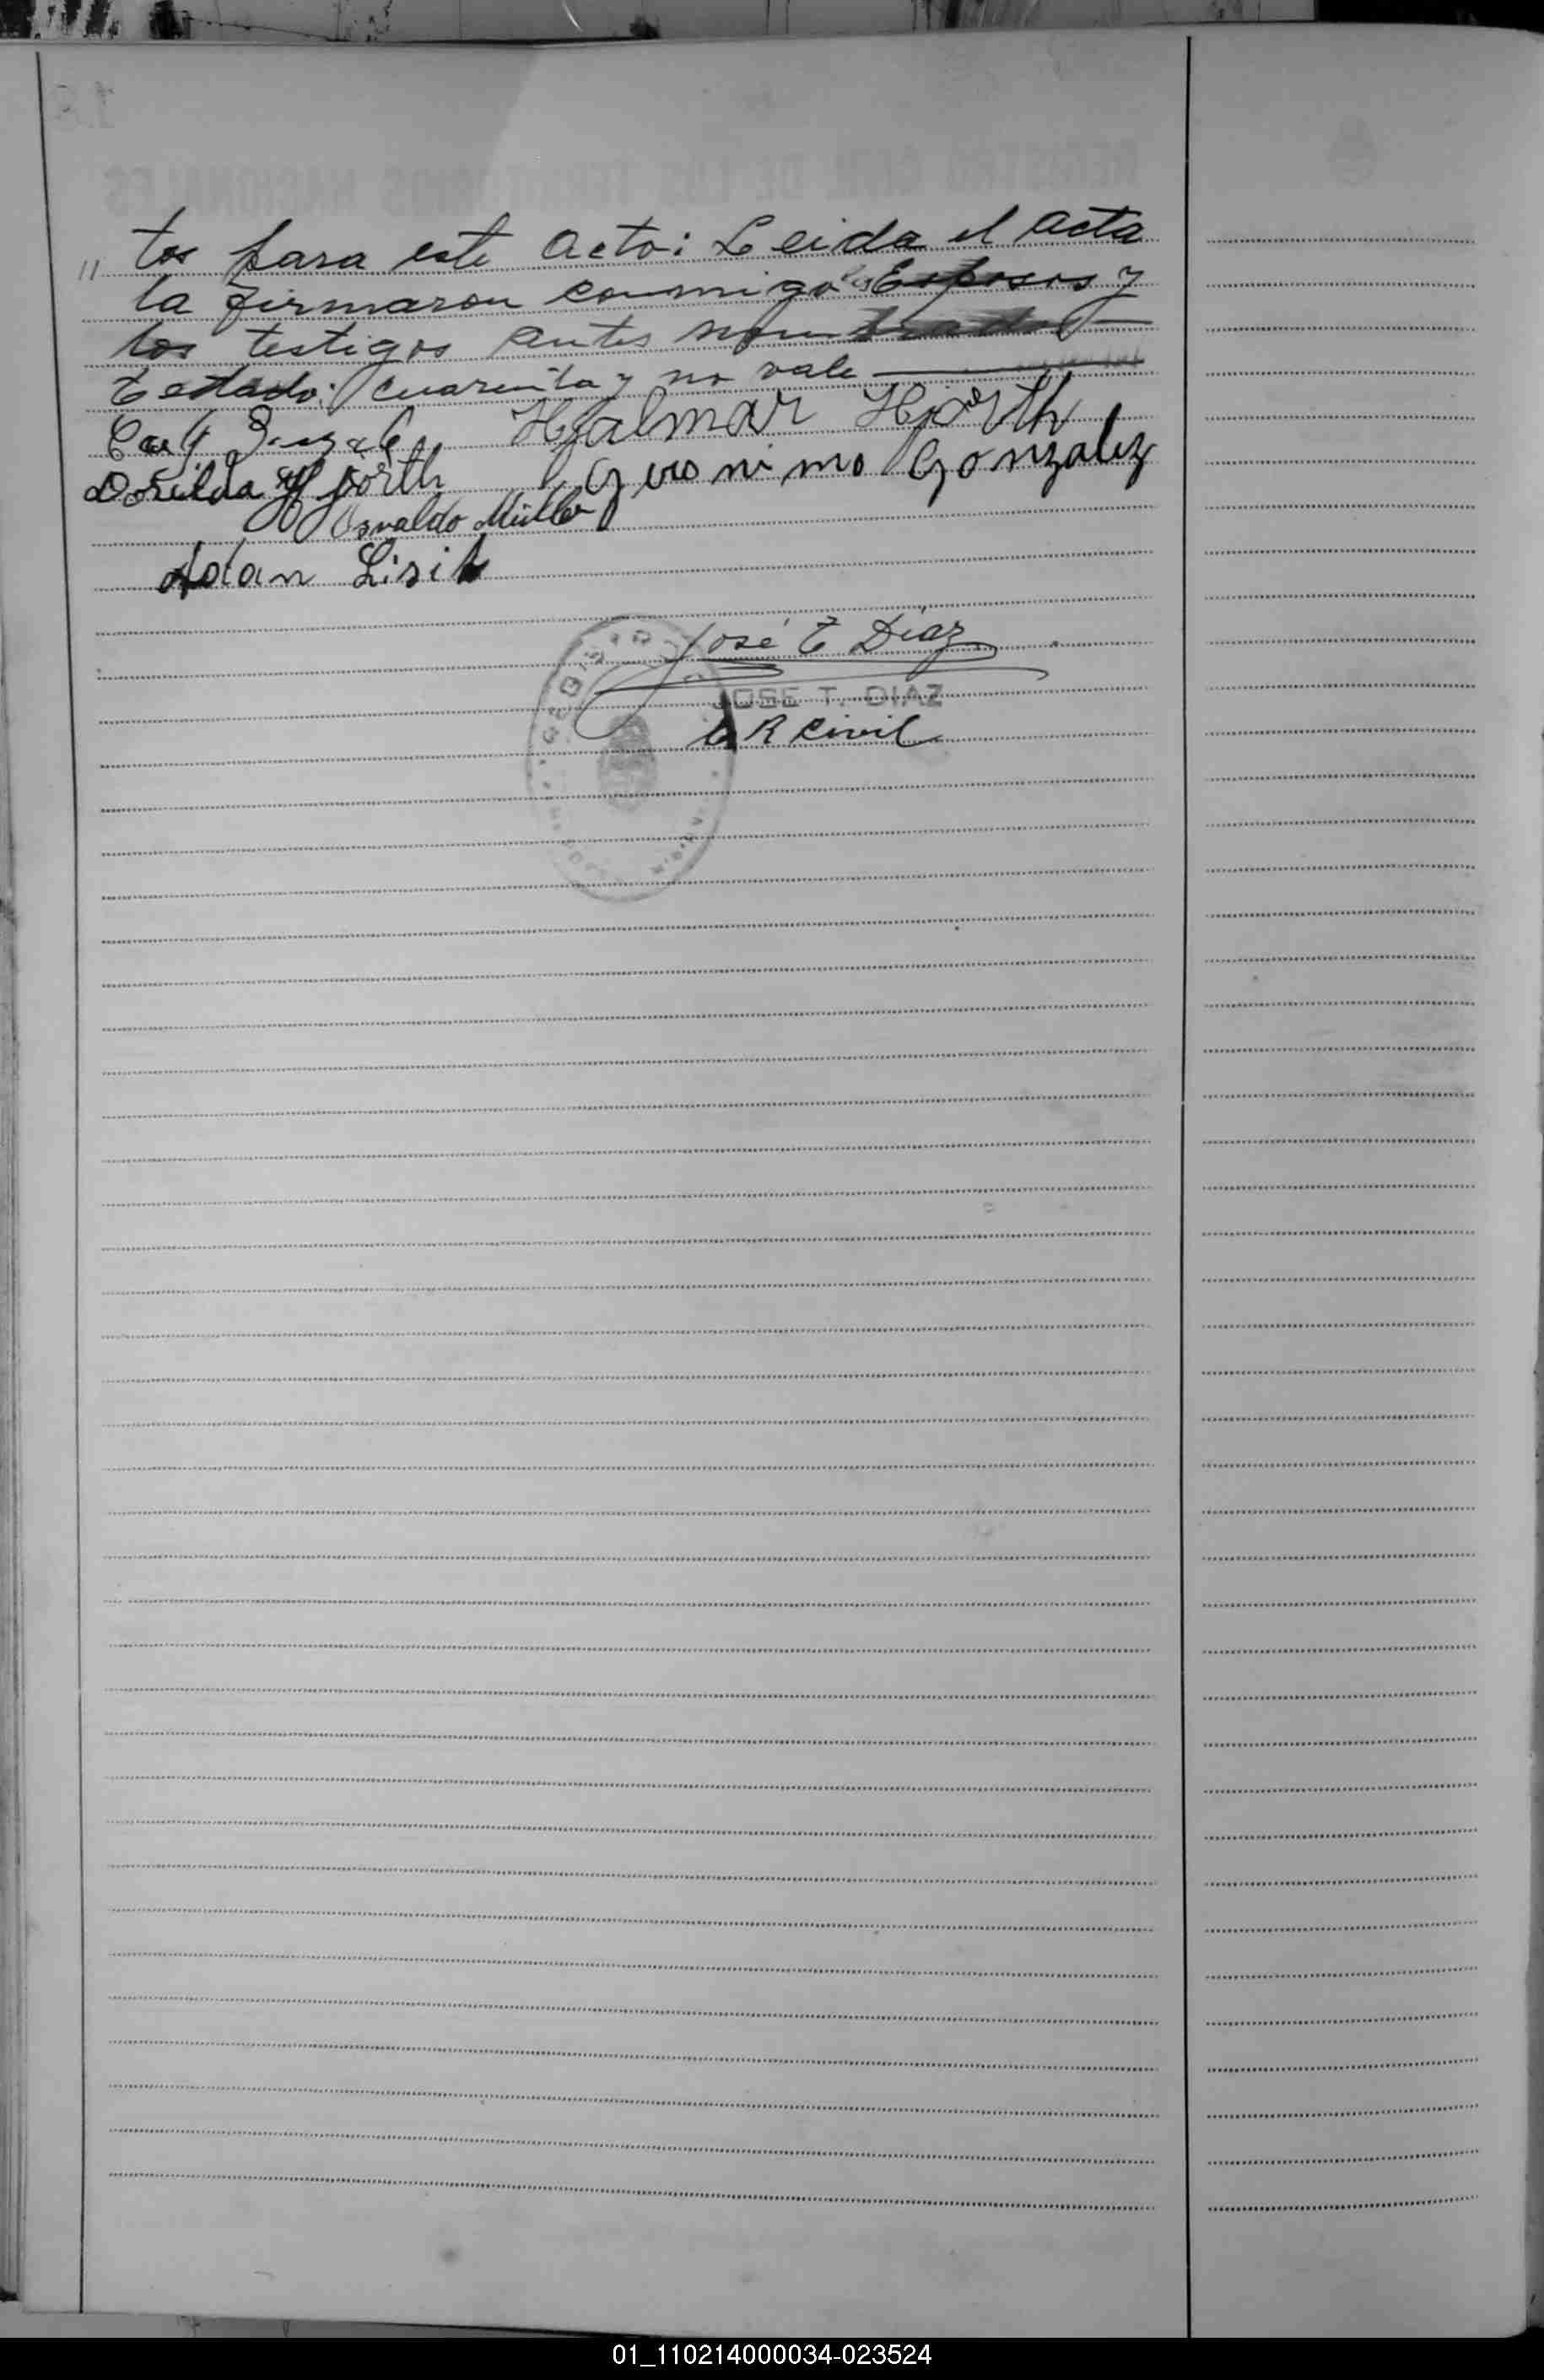 " tos para este acto: Leida el acta
la firmaron conmigo los Esposos y
los testigos antes nombrados
Testado: cuarenta y no vale
Hjalmar Hjorth
Dorilda Hjörth Geronimo Gonzalez
Osvaldo Müller
Adan Lisik
José T Diaz
JOSE T. DIAZ
R Civil
01_110214000034-023524